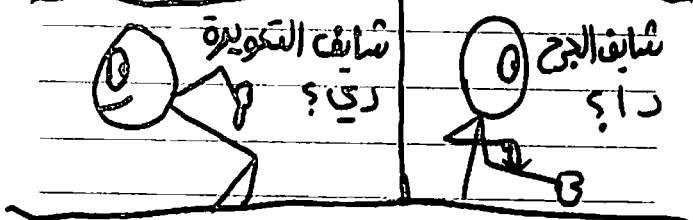 شايف الجرح
دا؟
شايف التكويرة
دي؟